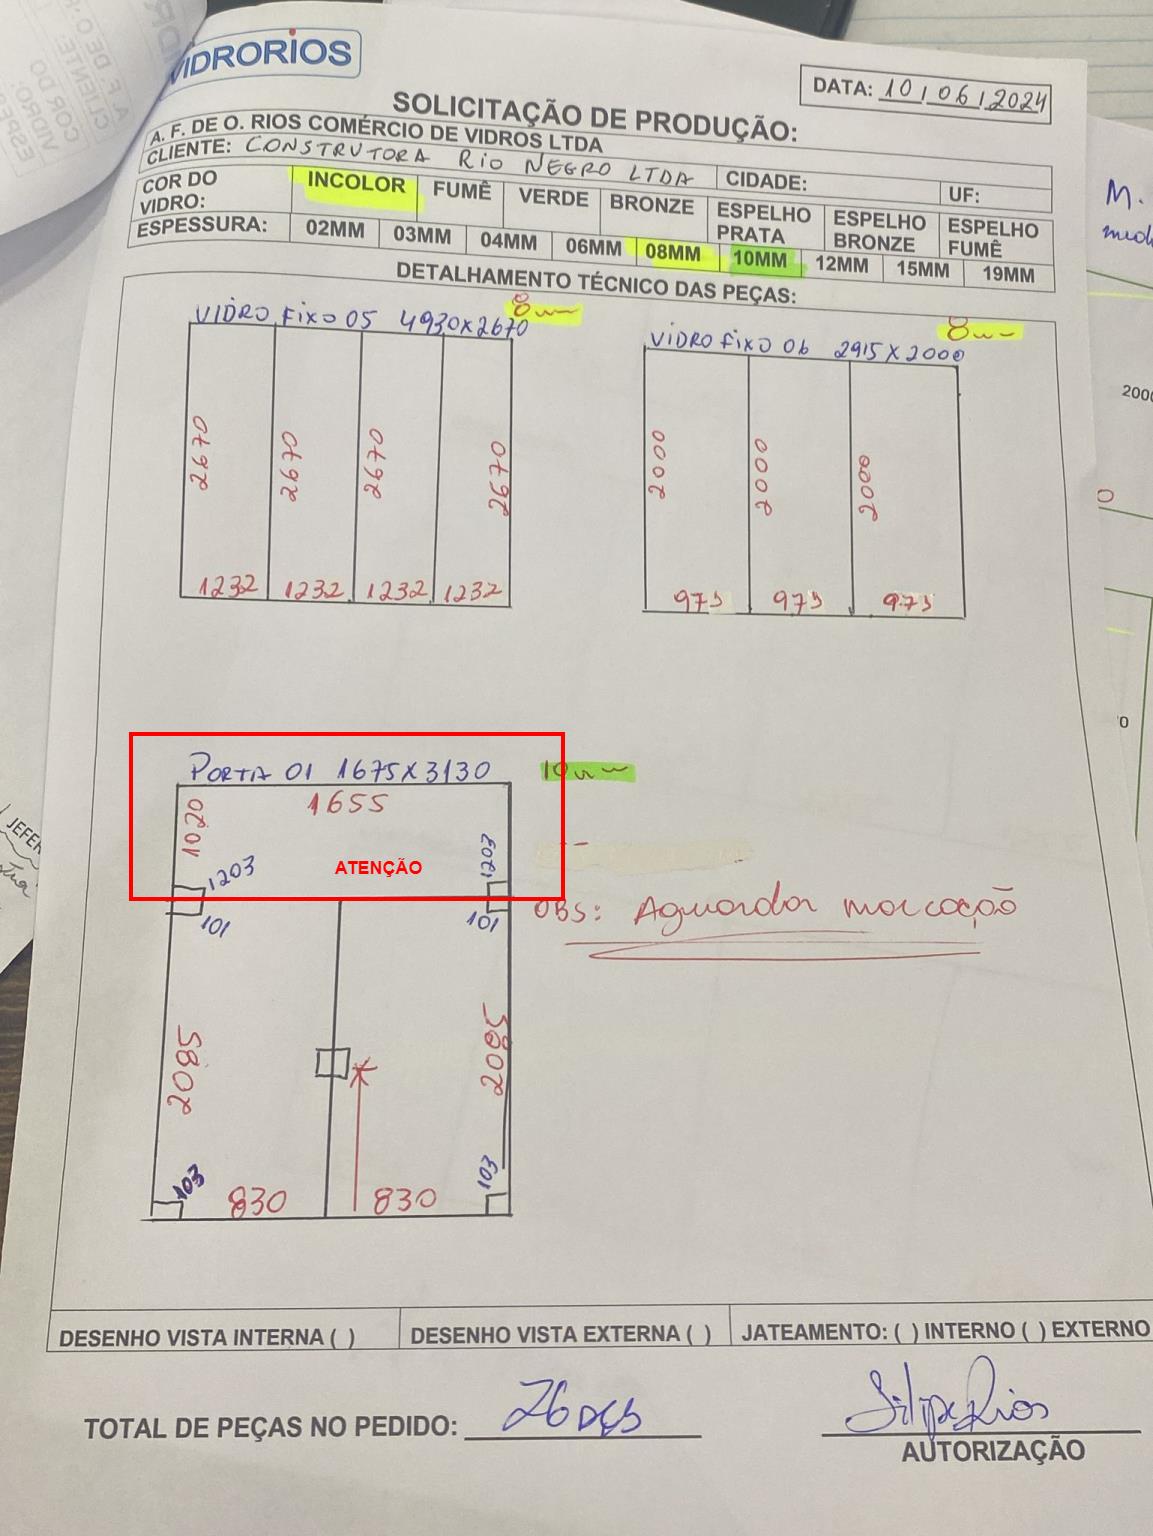 VIDRORIOS
DATA: 10/06/2024
SOLICITAÇÃO DE PRODUÇÃO:
A. F. DE O. RIOS COMÉRCIO DE VIDROS LTDA
CLIENTE: CONSTRUTORA RIO NEGRO LTDA CIDADE: UF:
COR DO VIDRO: INCOLOR FUMÊ VERDE BRONZE ESPELHO PRATA ESPELHO BRONZE ESPELHO FUMÊ
ESPESSURA: 02MM 03MM 04MM 06MM 08MM 10MM 12MM 15MM 19MM
DETALHAMENTO TÉCNICO DAS PEÇAS:
VIDRO FIXO 05 4930X2670 8mm
2670 2670 2670 2670
1232 1232 1232 1232
VIDRO FIXO 06 2915X2000 8mm
2000 2000 2000
973 973 973
PORTA 01 1675X3130 10mm
1655
1020
1203 1203
ATENÇÃO
101 101
OBS: Aguardar marcação
2085 2085
103 103
830 830
DESENHO VISTA INTERNA ( ) DESENHO VISTA EXTERNA ( ) JATEAMENTO: ( ) INTERNO ( ) EXTERNO
TOTAL DE PEÇAS NO PEDIDO: 26 pçs
Filipe Rios
AUTORIZAÇÃO
M.
2000
JEFER